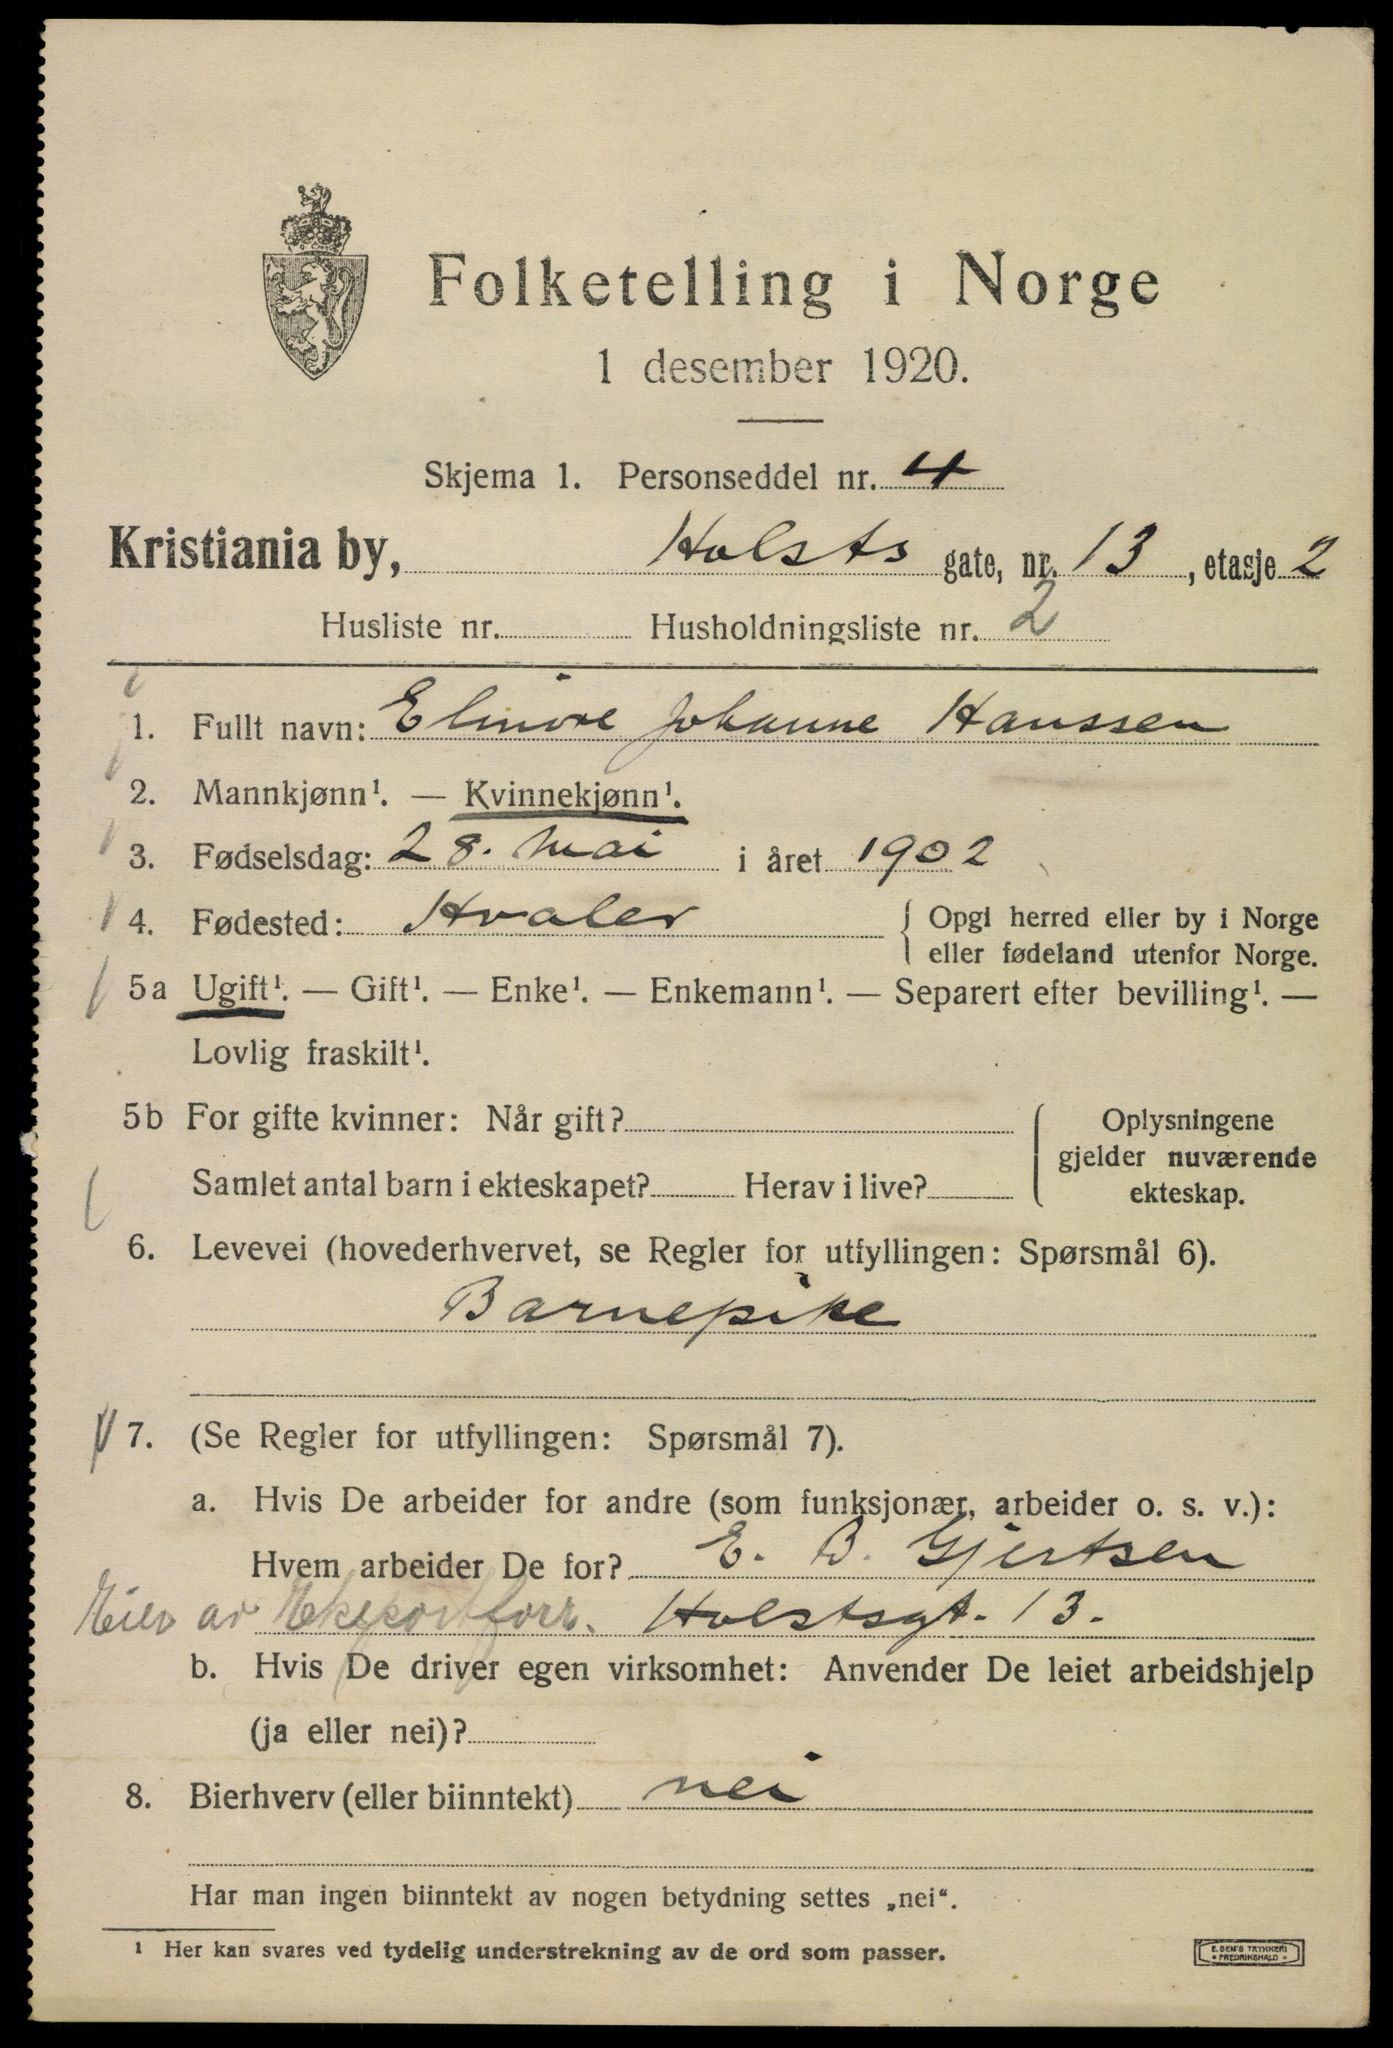 Folketelling i Norge
1 desember 1920.
Skjema 1. Personseddel nr. 4
Kristiania by, Holsts gate, nr. 13, etasje 2
Husliste nr. Husholdningsliste nr. 2
1. Fullt navn: Elinore Johanne Hanssen
2. Mannkjønn¹. — Kvinnekjønn¹.
3. Fødselsdag: 28. mai i året 1902
4. Fødested: Hvaler { Opgi herred eller by i Norge
eller fødeland utenfor Norge.
5a Ugift¹. — Gift¹. — Enke¹. — Enkemann¹. — Separert efter bevilling¹. —
Lovlig fraskilt¹.
5b For gifte kvinner: Når gift?
Samlet antal barn i ekteskapet? Herav i live?
Oplysningene
gjelder nuværende
ekteskap.
6. Levevei (hovederhvervet, se Regler for utfyllingen: Spørsmål 6).
Barnepike
7. (Se Regler for utfyllingen: Spørsmål 7).
a. Hvis De arbeider for andre (som funksjonær, arbeider o. s. v.):
Hvem arbeider De for? E. B. Gjertsen
Eier av Eksportforr. Holstsgt. 13.
b. Hvis De driver egen virksomhet: Anvender De leiet arbeidshjelp
(ja eller nei)?
8. Bierhverv (eller biinntekt) nei
Har man ingen biinntekt av nogen betydning settes „nei“.
¹ Her kan svares ved tydelig understrekning av de ord som passer.
E. SEM'S TRYKKERI
FREDRIKSHALD